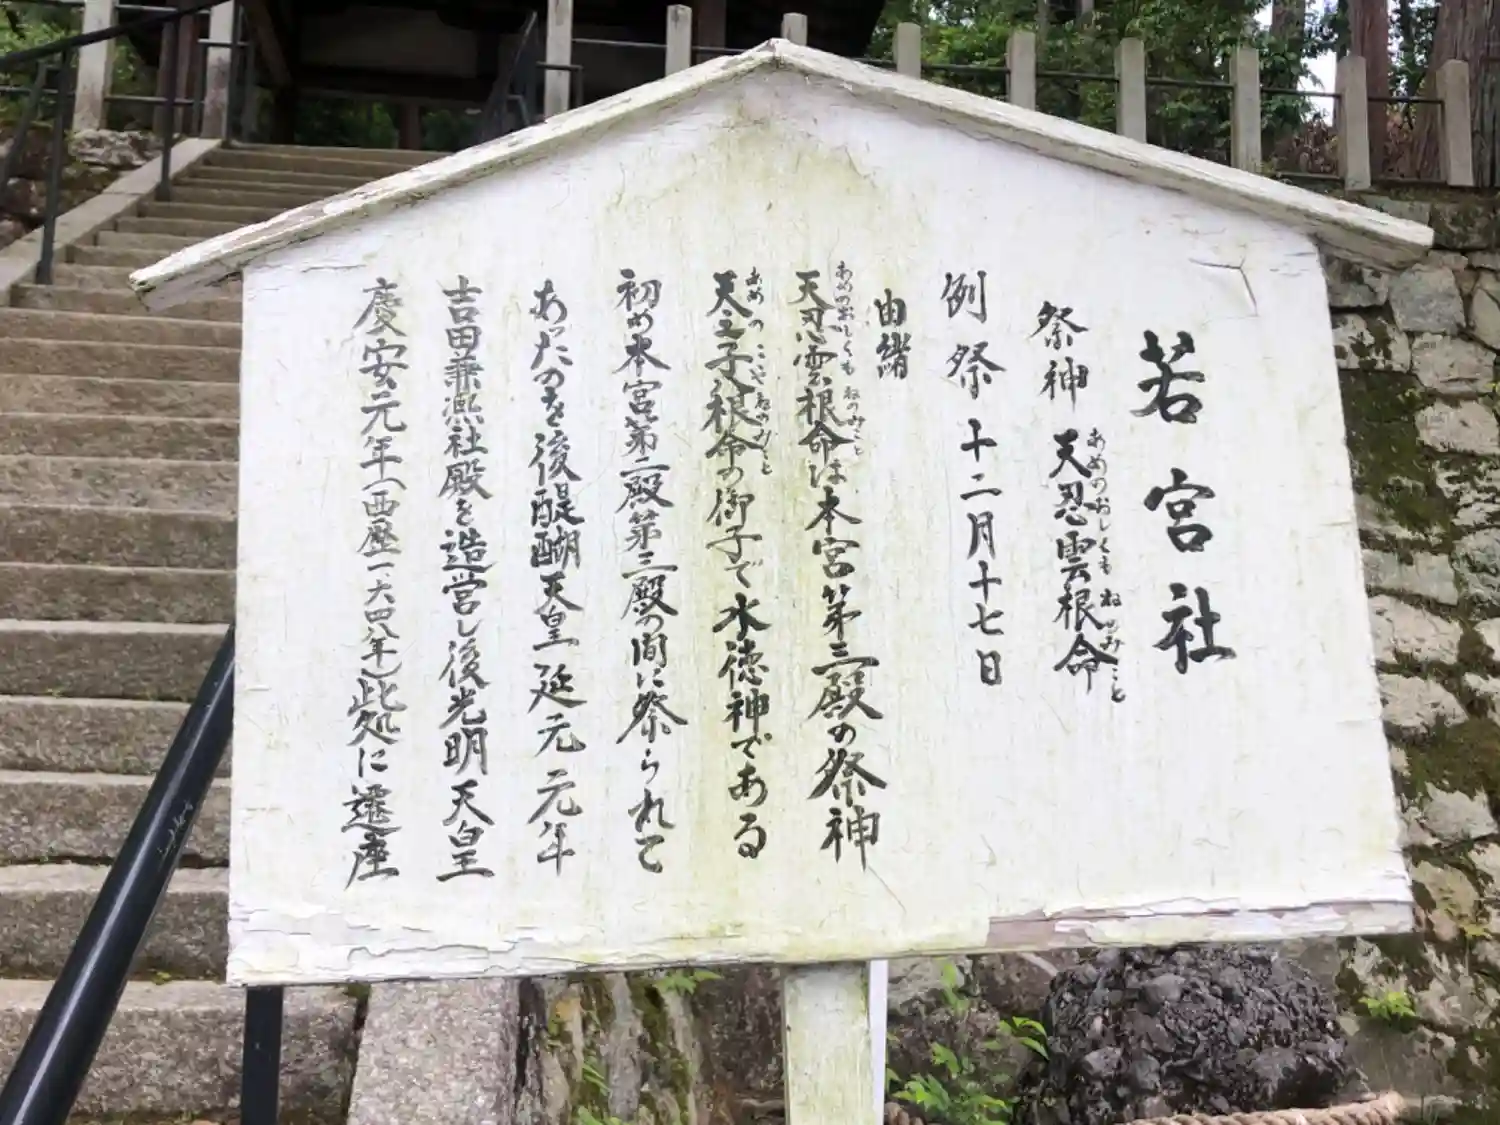 若宮社
祭神 天忍雲根命
あめのおしくも ねのみこと
例祭 十二月十七日
由緒
天忍雲根命は本宮第三殿の祭神
あめのおしくも ねのみこと
天之子八根命の御子で水徳神である
あめの こやねのみこと
初め本宮第二殿第三殿の間に祭られて
あったのを後醍醐天皇延元元年
吉田兼熙社殿を造営し後光明天皇
慶安元年(西歴一六四八年)此処に遷座